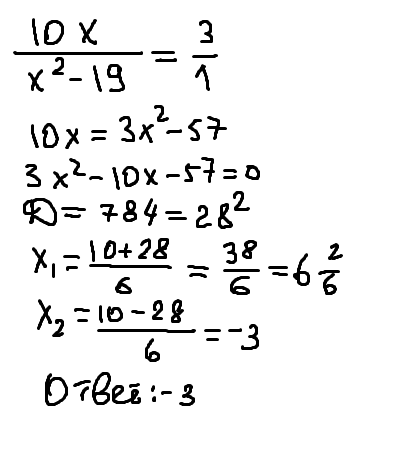 10x / x² - 19 = 3 / 1
10x = 3x² - 57
3x² - 10x - 57 = 0
D = 784 = 28²
x₁ = 10 + 28 / 6 = 38 / 6 = 6 2/6
x₂ = 10 - 28 / 6 = -3
Ответ: -3